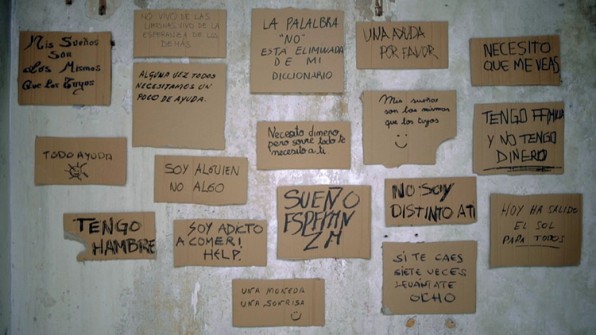 NO VIVO DE LAS
LIMOSNAS VIVO DE LA
ESPERANZA DE LOS
DEMÁS
LA PALALBRA
"NO"
ESTA ELIMINADA
DE MI
DICCIONARIO
UNA AYUDA
POR FAVOR
NECESITO
QUE ME VEAS
Mis Sueños
Son
Los Mismos
Que los Tuyos
ALGUNA VEZ TODOS
NECESITAMOS UN
POCO DE AYUDA.
Mis sueños
son los mismos
que los tuyos
TENGO FAMILIA
Y NO TENGO
DINERO
Necesito dinero,
pero sobre todo te
necesito a ti
TODO AYUDA
SOY ALGUIEN
NO ALGO
SUEÑO
ESPERAN
ZA
NO SOY
DISTINTO A TI
HOY HA SALIDO
EL SOL
PARA TODOS
TENGO
HAMBRE
SOY ADICTO
A COMER!
HELP.
SI TE CAES
SIETE VECES
LEVANTATE
OCHO
UNA MONEDA
UNA SONRISA